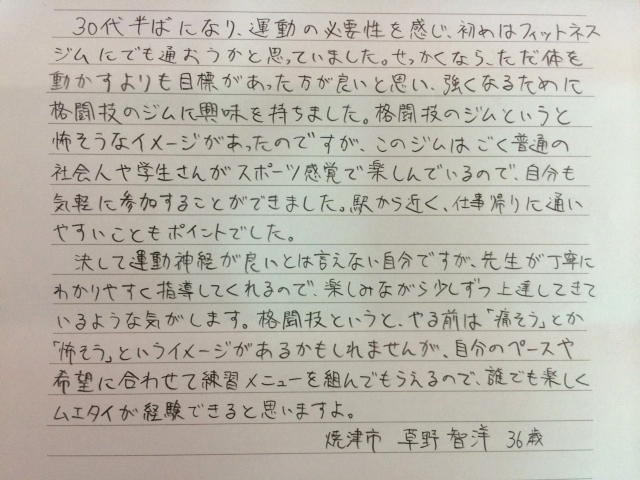 30代半ばになり、運動の必要性を感じ、初めはフィットネス
ジムにでも通おうかと思っていました。せっかくなら、ただ体を
動かすよりも目標があった方が良いと思い、強くなるために
格闘技のジムに興味を持ちました。格闘技のジムというと
怖そうなイメージがあったのですが、このジムはごく普通の
社会人や学生さんがスポーツ感覚で楽しんでいるので、自分も
気軽に参加することができました。駅から近く、仕事帰りに通い
やすいこともポイントでした。
決して運動神経が良いとは言えない自分ですが、先生が丁寧に
わかりやすく指導してくれるので、楽しみながら少しずつ上達してきて
いるような気がします。格闘技というと、やる前は「痛そう」とか
「怖そう」というイメージがあるかもしれませんが、自分のペースや
希望に合わせて練習メニューを組んでもらえるので、誰でも楽しく
ムエタイが経験できると思いますよ。
焼津市 草野 智洋 36歳